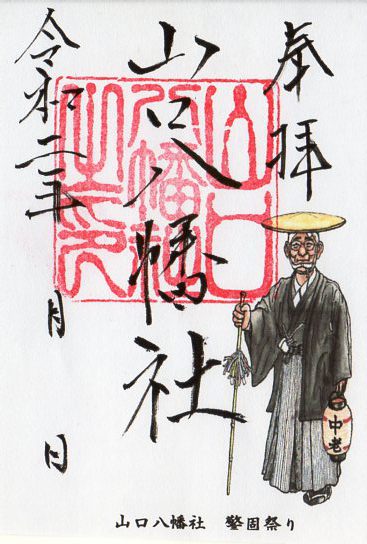 奉拝
山口八幡社
令和二年 月 日
山口八幡社之印
中老
山口八幡社 警固祭り